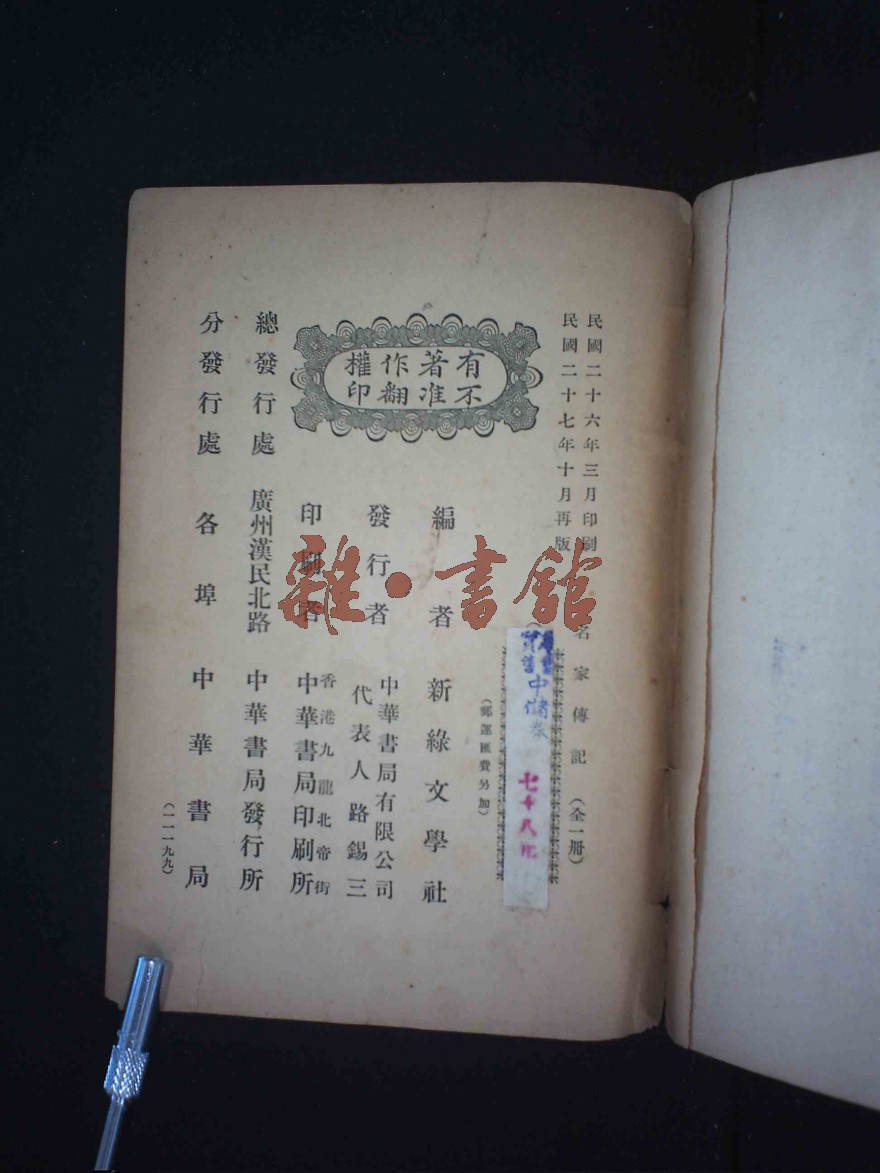 民國二十六年三月印刷
民國二十七年十月再版
名家傳記（全一冊）
實售中儲券 七十八元
（郵運匯費另加）
有著作權
不准翻印
編者 新綠文學社
發行者 中華書局有限公司
代表人 路錫三
印刷者 香港九龍北帝街
中華書局印刷所
總發行處 廣州漢民北路 中華書局發行所
分發行處 各埠 中華書局
（一一一九九）
雜·書館